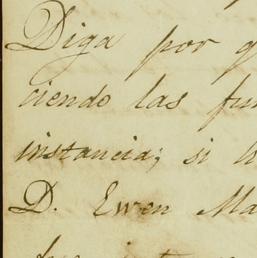 Diga por q
ciendo las fu
instancia; si h
D. Ewen Ma